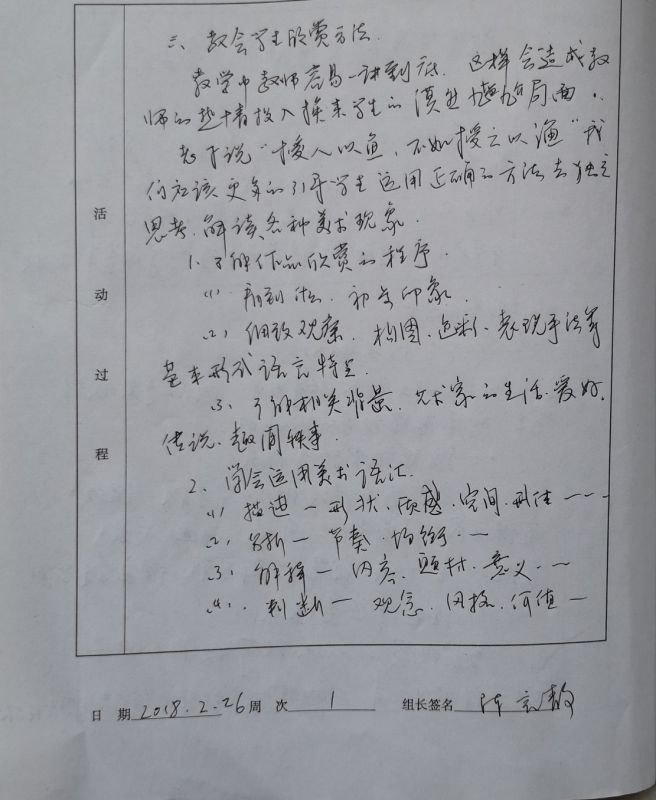 三、教会学生欣赏方法.
教学中教师容易一讲到底. 这样会造成教
师的热情投入换来学生的漠然 局面.
老子说"授人以鱼, 不如授之以渔"我
们应该更多的引导学生运用正确的方法去独立
思考.解读各种美术现象.
1. 了解作品欣赏的程序.
(1) 初步印象.
(2) 细致观察. 构图.色彩、表现手法等
基本形式语言特点.
(3) 了解相关背景. 艺术家的生活.爱好.
传说.趣闻轶事.
2. 学会运用美术语汇.
(1) 描述 — 形状.质感.空间.形体 ---
(2) 分析 — 节奏.均衡.--
(3) 解释 — 内容.题材.意义.--
(4) 判断 — 观念.风格.价值 —
活
动
过
程
日 期 2018.2.26 周 次 1 组长签名